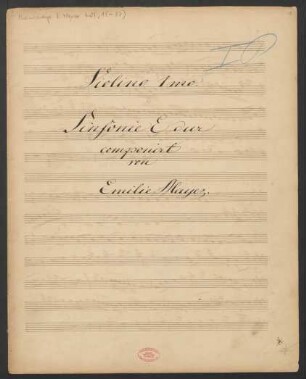 Violino 1mo.
Sinfonie E dur
componirt
von
Emilie Mayer.